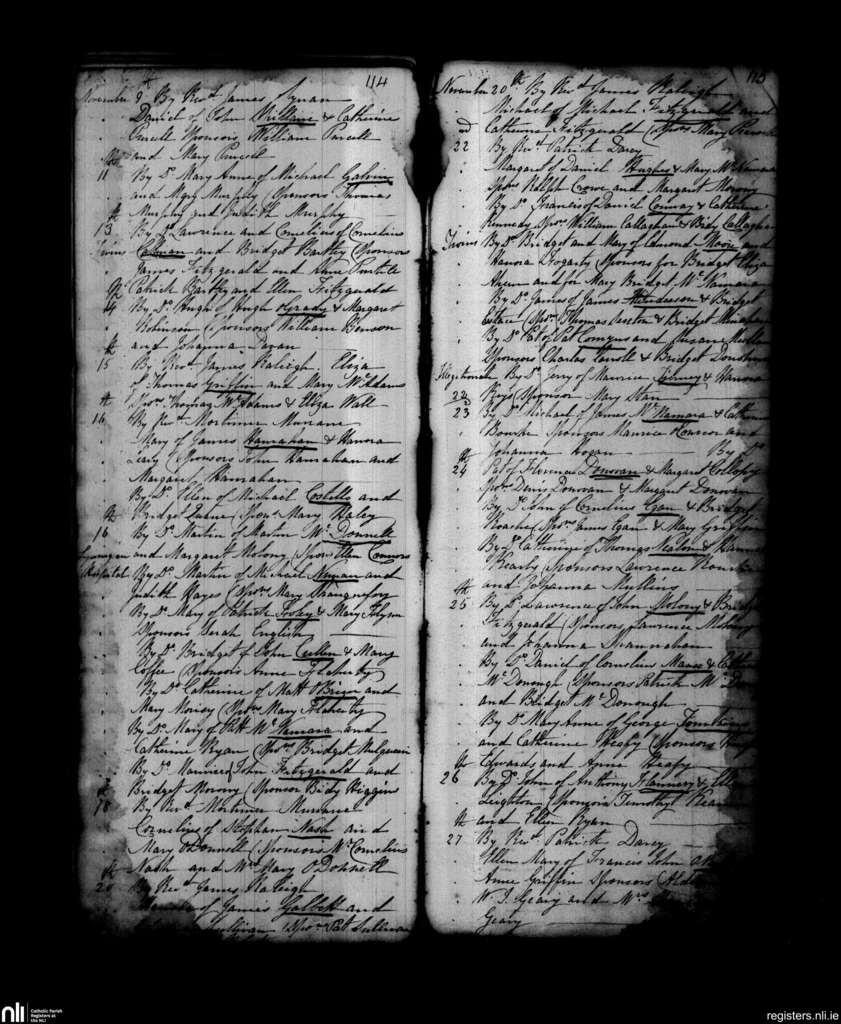 114
November 9th By Revd James Synan
Daniel of John & Catherine
Purcell Sponsors William Purcell
and Mary Purcell
11th By Do Mary Anne of Michael Galvin
and Mary Murphy (Sponsors Thomas
Murphy and Judith Murphy
13th By Do Lawrence and Cornelius of Cornelius
Twins and Bridget Barthy (Sponsors
James Fitzgerald and Anne
Patrick Barthy and Ellen Fitzgerald
14th By Do Hugh of Hugh Grady & Margaret
Robinson (Sponsors William Benson
and Johanna
15th By Revd James Raleigh. Eliza
of Thomas Griffin and Mary McAdams
Sponrs Thomas McAdams & Eliza Wall
16th By Revd Mortimer Murnane
Mary of James Hanrahan & Hanora
Leary (Sponsors John Hanrahan and
Margaret Hanrahan
By Do Ellen of Michael Costello and
Bridget (Sponsr Mary Haley
16th By Do Martin of Martin McDonnell
and Margaret Molony (Sponsr Ellen Connors
Hospital By Do Martin of Michael and
Judith Hayes (Sponsr Mary
By Do Mary of Patrick & Mary Flynn
Sponsors Sarah English
By Do Bridget of John Cullen & Mary
Coffee (Sponsors Anne Flaherty
By Do Catherine of Matt O'Brien and
Mary (Sponsr Mary Flaherty
By Do Mary of Patt McNamara and
Catherine Ryan (Sponsr Bridget Mulqueen
By Do Maurice of John Fitzgerald and
Bridget Morony (Sponsor Bidy Higgins
18th By Revd Mortimer Murnane
Cornelius of Stephen Nash and
Mary O'Donnell (Sponsors Mr Cornelius
Nash and Mrs Mary O'Donnell
20th By Revd James Raleigh
of James Galbett and
Sullivan (Sponr Pat Sullivan
115
November 20th By Revd James Raleigh
Michael of Michael Fitzgerald and
Catherine Fitzgerald (Sponsr Mary
22nd By Revd Patrick Darcy
Margaret of Daniel Hughes & Mary McNamara
Sponrs Ralph Crowe and Margaret Morony
By Do Francis of Daniel Conway & Catherine
Kennedy Sponrs William Callaghan & Bidy Callaghan
Twins By Do Bridget and Mary of Edmond Moore and
Hanora Fogarty (Sponsors for Bridget Eliza
Ahern and for Mary Bridget McNamara
By Do James of James Henderson & Bridget
(Sponrs Thomas & Bridget
By Do Pat of Pat Comyns and Susan
Sponsors Charles & Bridget
Illegitimate By Do Jerry of Maurice & Hanora
22nd Sponsor Mary
23 By Do Michael of James McNamara & Catherine
Bourke Sponsors Maurice Connor and
Johanna Hogan — By Do
24th Pat of Florence Donovan & Margaret Collopy
Sponrs Denis Donovan & Margaret Donovan
By Do John of Cornelius Egan & Bridget
Roache (Sponrs James Egan & Mary Griffin
By Do Catherine of Thomas & Hanora
(Sponsors Lawrence
and Johanna Mullins
25th By Do Lawrence of John Molony & Bridget
Fitzgerald (Sponsors Lawrence Molony
and Johanna Shannahan
By Do Daniel of Cornelius & Catherine
McDonough (Sponsors Patrick
and Bridget McDonough
By Do Mary Anne of George Tomkins
and Catherine Heafy (Sponsors
Edwards and Anne Heafy
26th By Do John of Anthony Flannery & Ellen
Leighton (Sponsors Timothy
and Ellen Ryan
27th By Revd Patrick Darcy
Ellen Mary of Francis John
Anne Griffin Sponsors
W. J. Geary and Mrs
Geary
nli
Catholic Parish
Registers at
the NLI
registers.nli.ie